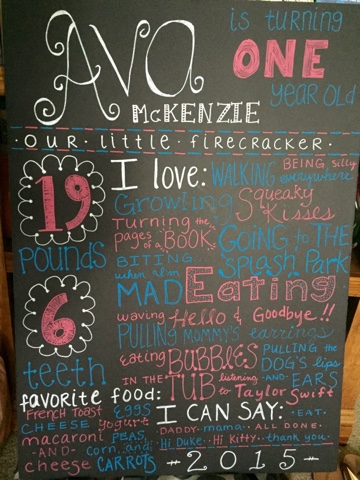 Ava
McKENZIE
is turning
ONE
year old
·our·little·firecracker·
19
pounds
6
teeth
favorite food:
French Toast
Eggs
CHEESE
Yogurt
macaroni
PEAS
-AND-
corn and
cheese
CARROTS
I love:
WALKING everywhere
BEING silly
Growling
Squeaky Kisses
Turning the pages of a BOOK
GOING to THE Splash Park
BITING when I'm MAD
Eating
waving Hello & Goodbye!!
PULLING MOMMY'S earrings
eating BUBBLES IN THE TUB
PULLING the DOG'S lips -AND- EARS
listening to Taylor Swift
I CAN SAY: ·EAT·
DADDY·mama··ALL DONE·
·Hi Duke··Hi Kitty··thank you·
-2015-